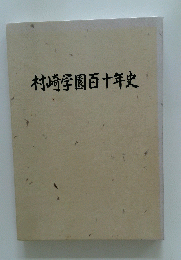 村崎学園百十年史